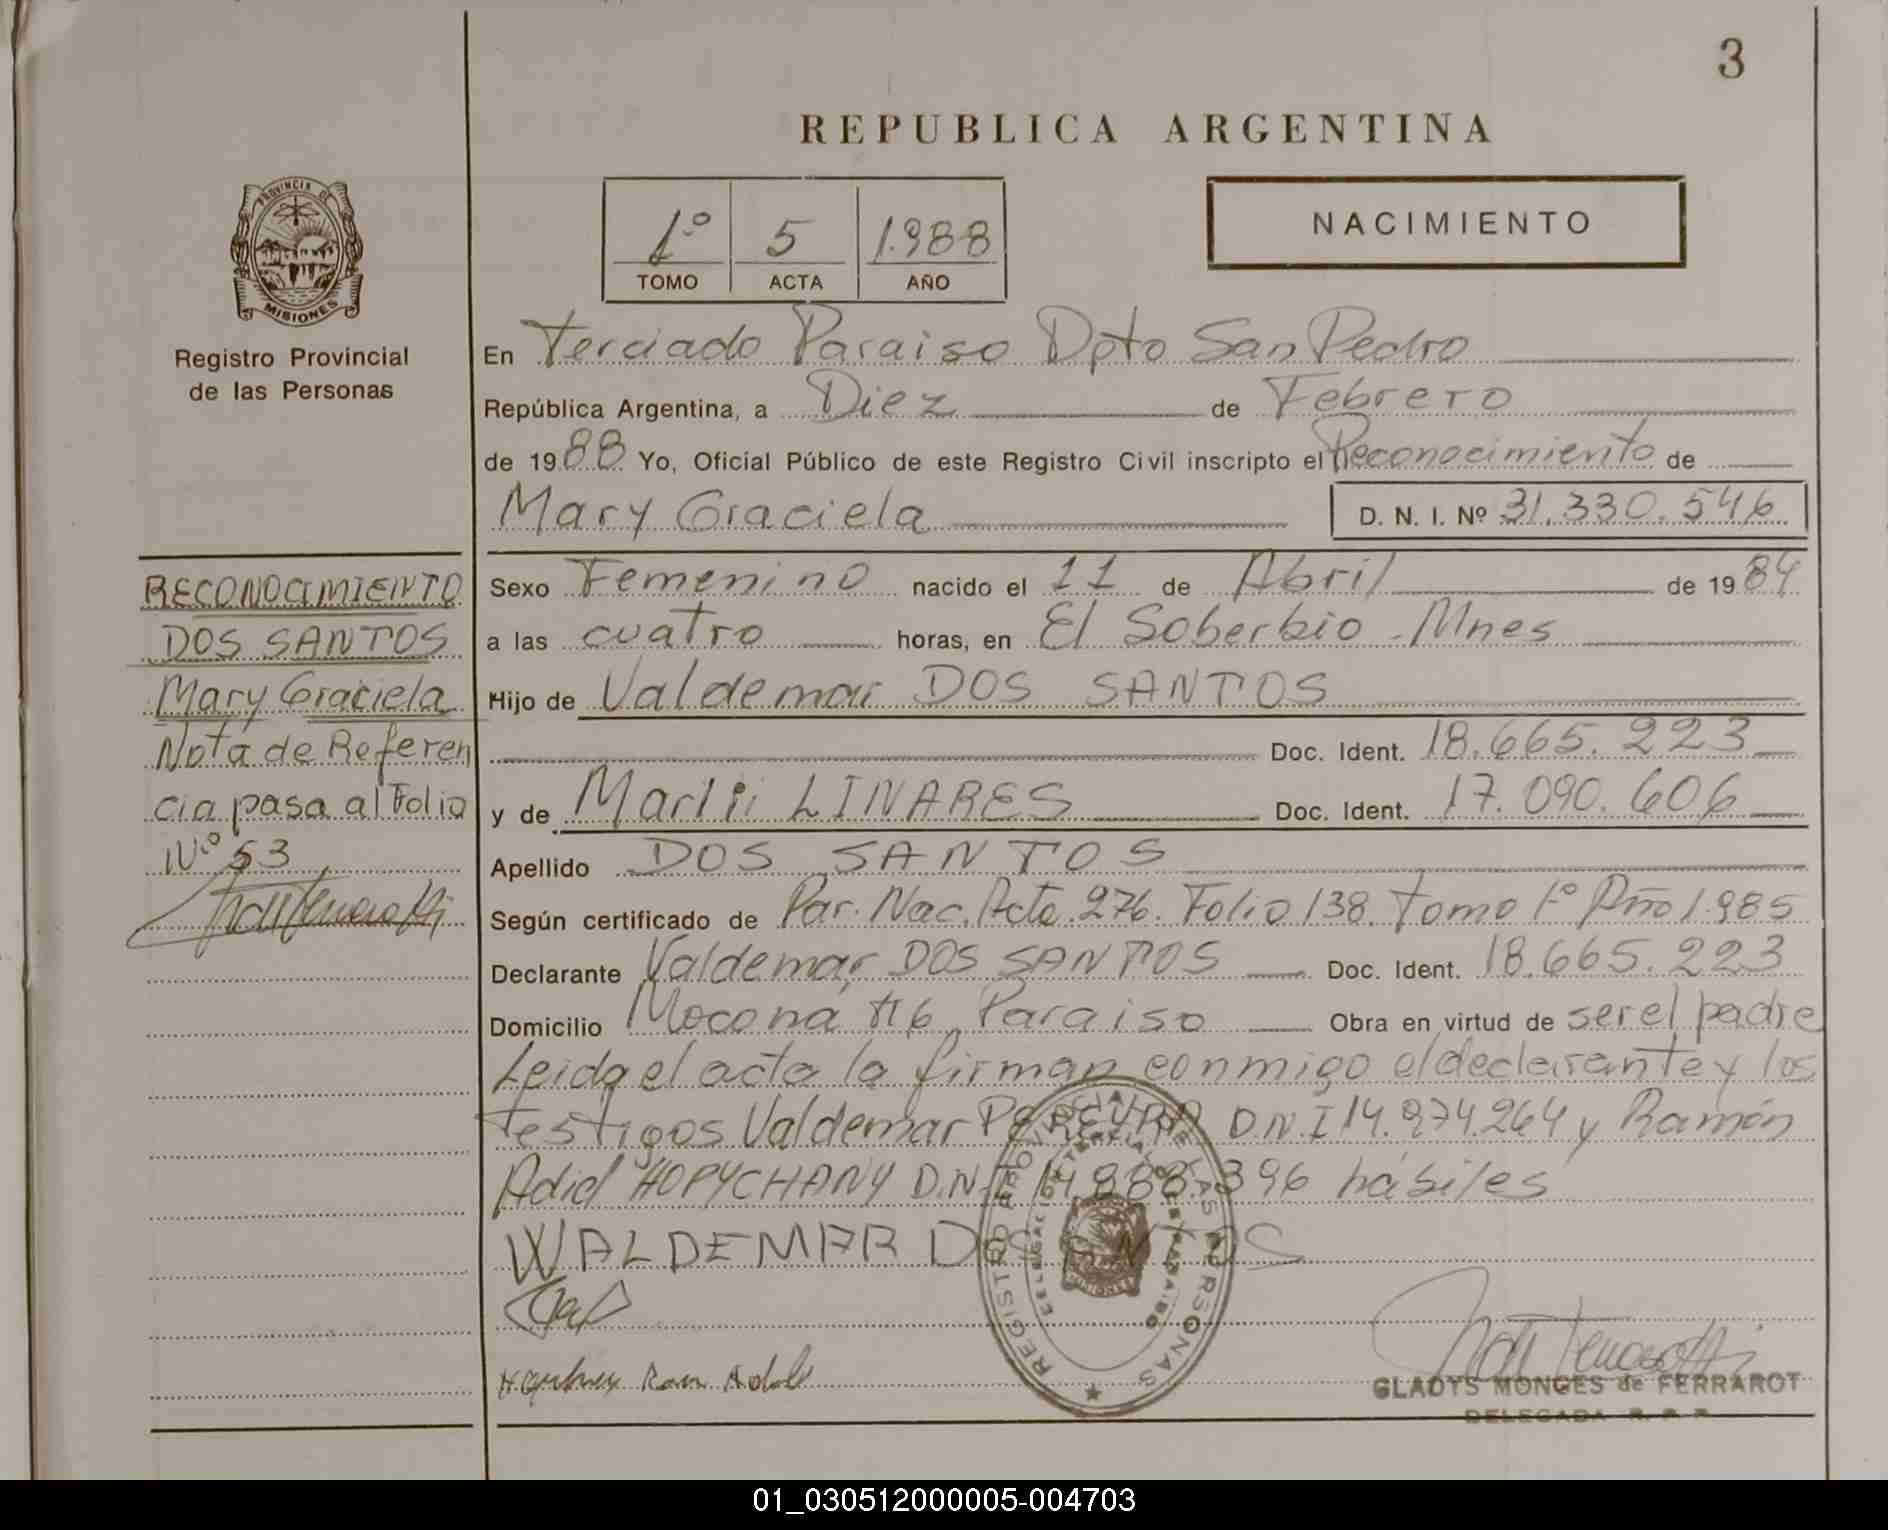 3
REPUBLICA ARGENTINA
PROVINCIA DE
MISIONES
Registro Provincial
de las Personas
1º 5 1.988
TOMO ACTA AÑO
NACIMIENTO
En Terciado Paraiso Dpto San Pedro
República Argentina, a Diez de Febrero
de 1988 Yo, Oficial Público de este Registro Civil inscripto el Reconocimiento de
Mary Graciela D. N. I. Nº 31.330.546
RECONOCIMIENTO
DOS SANTOS
Mary Graciela
Nota de Referen
cia pasa al Folio
Nº 53
Sexo Femenino nacido el 11 de Abril de 1984
a las cuatro horas, en El Soberbio - Mnes
Hijo de Valdemar DOS SANTOS
Doc. Ident. 18.665.223
y de Marlii LINARES Doc. Ident. 17.090.606
Apellido DOS SANTOS
Según certificado de Par. Nac. Acta 276. Folio 138. Tomo 1º Año 1985
Declarante Valdemar DOS SANTOS Doc. Ident. 18.665.223
Domicilio Mocona Paraiso Obra en virtud de ser el padre
Leida el acta la firman conmigo el declarante y los
testigos Valdemar PEREYRA D.N.I 14.974.264 y Ramón
Adid HOPYCHANY D.N.I. 14.888.396 hábiles
WALDEMAR DOS SANTOS
REGISTRO PROVINCIAL DE LAS PERSONAS
GLADYS MONGES de FERRAROT
DELEGADA R. P. P.
01_030512000005-004703